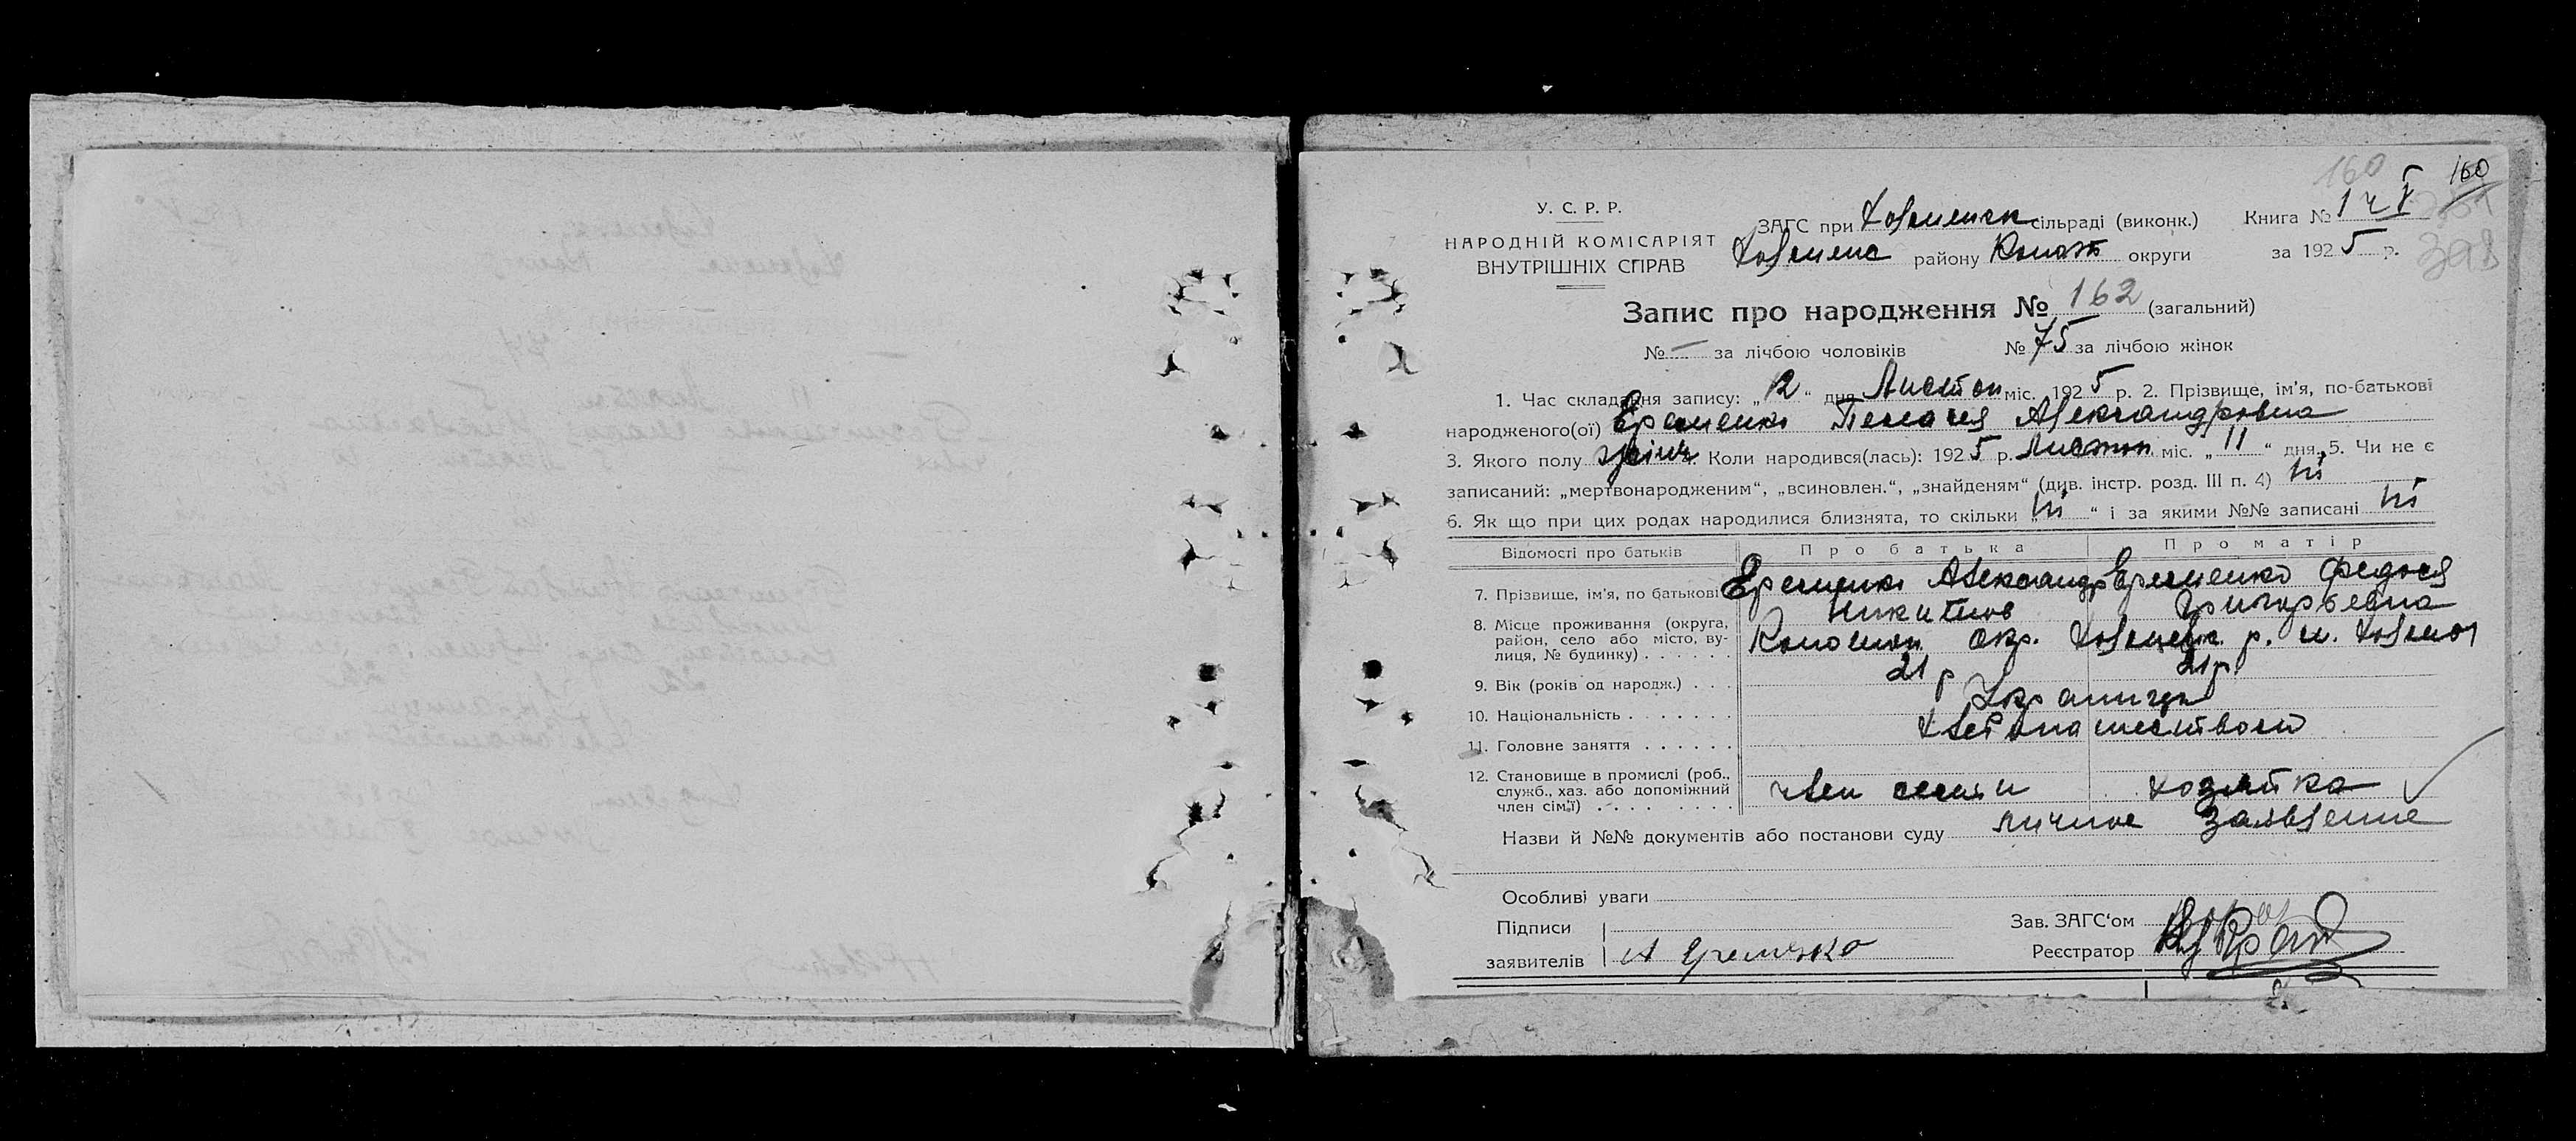 160 160
У. С. Р. Р.
НАРОДНІЙ КОМІСАРІЯТ
ВНУТРІШНІХ СПРАВ
ЗАГС при сільраді (виконк.)
району Конот округи
Книга № 1
за 1925 р.
Запис про народження № 162 (загальний)
№ — за лічбою чоловіків № 75 за лічбою жінок
1. Час складання запису: „12“ дня Листоп міс. 1925 р. 2. Прізвище, ім'я, по-батькові
народженого(ої) Еременко Пелагея Александровна
3. Якого полу жіноч 4. Коли народився(лась): 1925 р. Листоп міс. „11“ дня. 5. Чи не є
записаний: „мертвонародженим“, „всиновлен.“, „знайденям“ (див. інстр. розд. III п. 4) ні
6. Як що при цих родах народилися близнята, то скільки „ні“ і за якими №№ записані ні
Відомості про батьків Про батька Про матір
7. Прізвище, ім'я, по батькові Еременко Александр Еременко Федосея
Никитов Григорьевна
8. Місце проживання (округа, район, село або місто, вулиця, № будинку) Конотоп окр. р. м.
9. Вік (років од народж.) 21 р 21 р.
10. Національність Украинцы
11. Головне заняття хлебопашеством
12. Становище в промислі (роб., служб., хаз. або допоміжний член сім'ї) член семьи хозяйка
Назви й №№ документів або постанови суду личное заявление
Особливі уваги
Підписи
заявителів А Еременко
Зав. ЗАГС'ом
Реєстратор